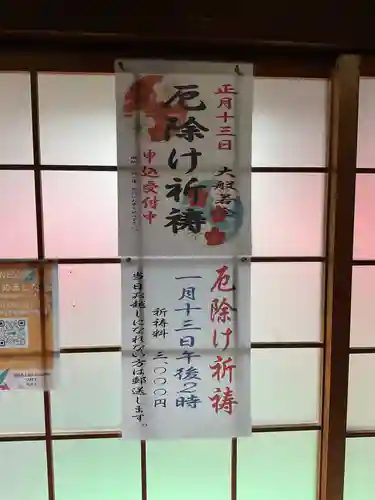 正月十三日
大般若会
厄除け祈祷
申込受付中
厄除け祈祷
一月十三日午後2時
祈祷料 三、〇〇〇円
当日お越しになれない方は郵送します